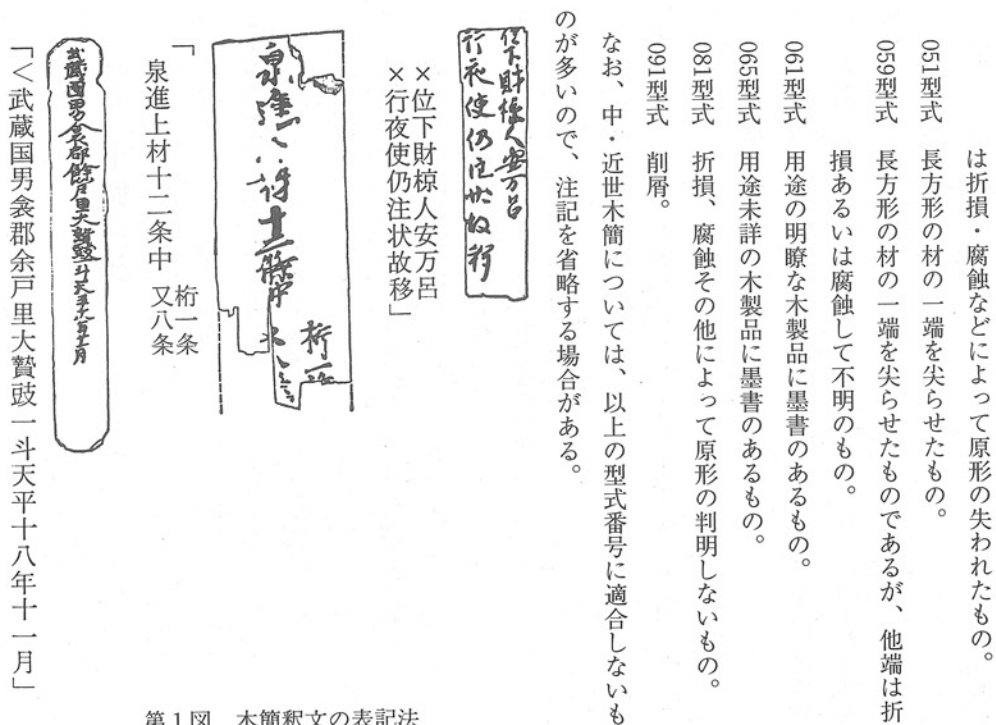 は折損・腐蝕などによって原形の失われたもの。
051型式　長方形の材の一端を尖らせたもの。
059型式　長方形の材の一端を尖らせたものであるが、他端は折
損あるいは腐蝕して不明のもの。
061型式　用途の明瞭な木製品に墨書のあるもの。
065型式　用途未詳の木製品に墨書のあるもの。
081型式　折損、腐蝕その他によって原形の判明しないもの。
091型式　削屑。
なお、中・近世木簡については、以上の型式番号に適合しないも
のが多いので、注記を省略する場合がある。
位下財椋人安万呂
行夜使仍注状故移
×位下財椋人安万呂
×行夜使仍注状故移」
泉進上材十二条中
桁一条
又八
「
泉進上材十二条中　桁一条
又八条
武蔵国男衾郡餘戸里大贄豉一斗天平十八年十一月
「＜武蔵国男衾郡余戸里大贄豉一斗天平十八年十一月」
第1図　木簡釈文の表記法